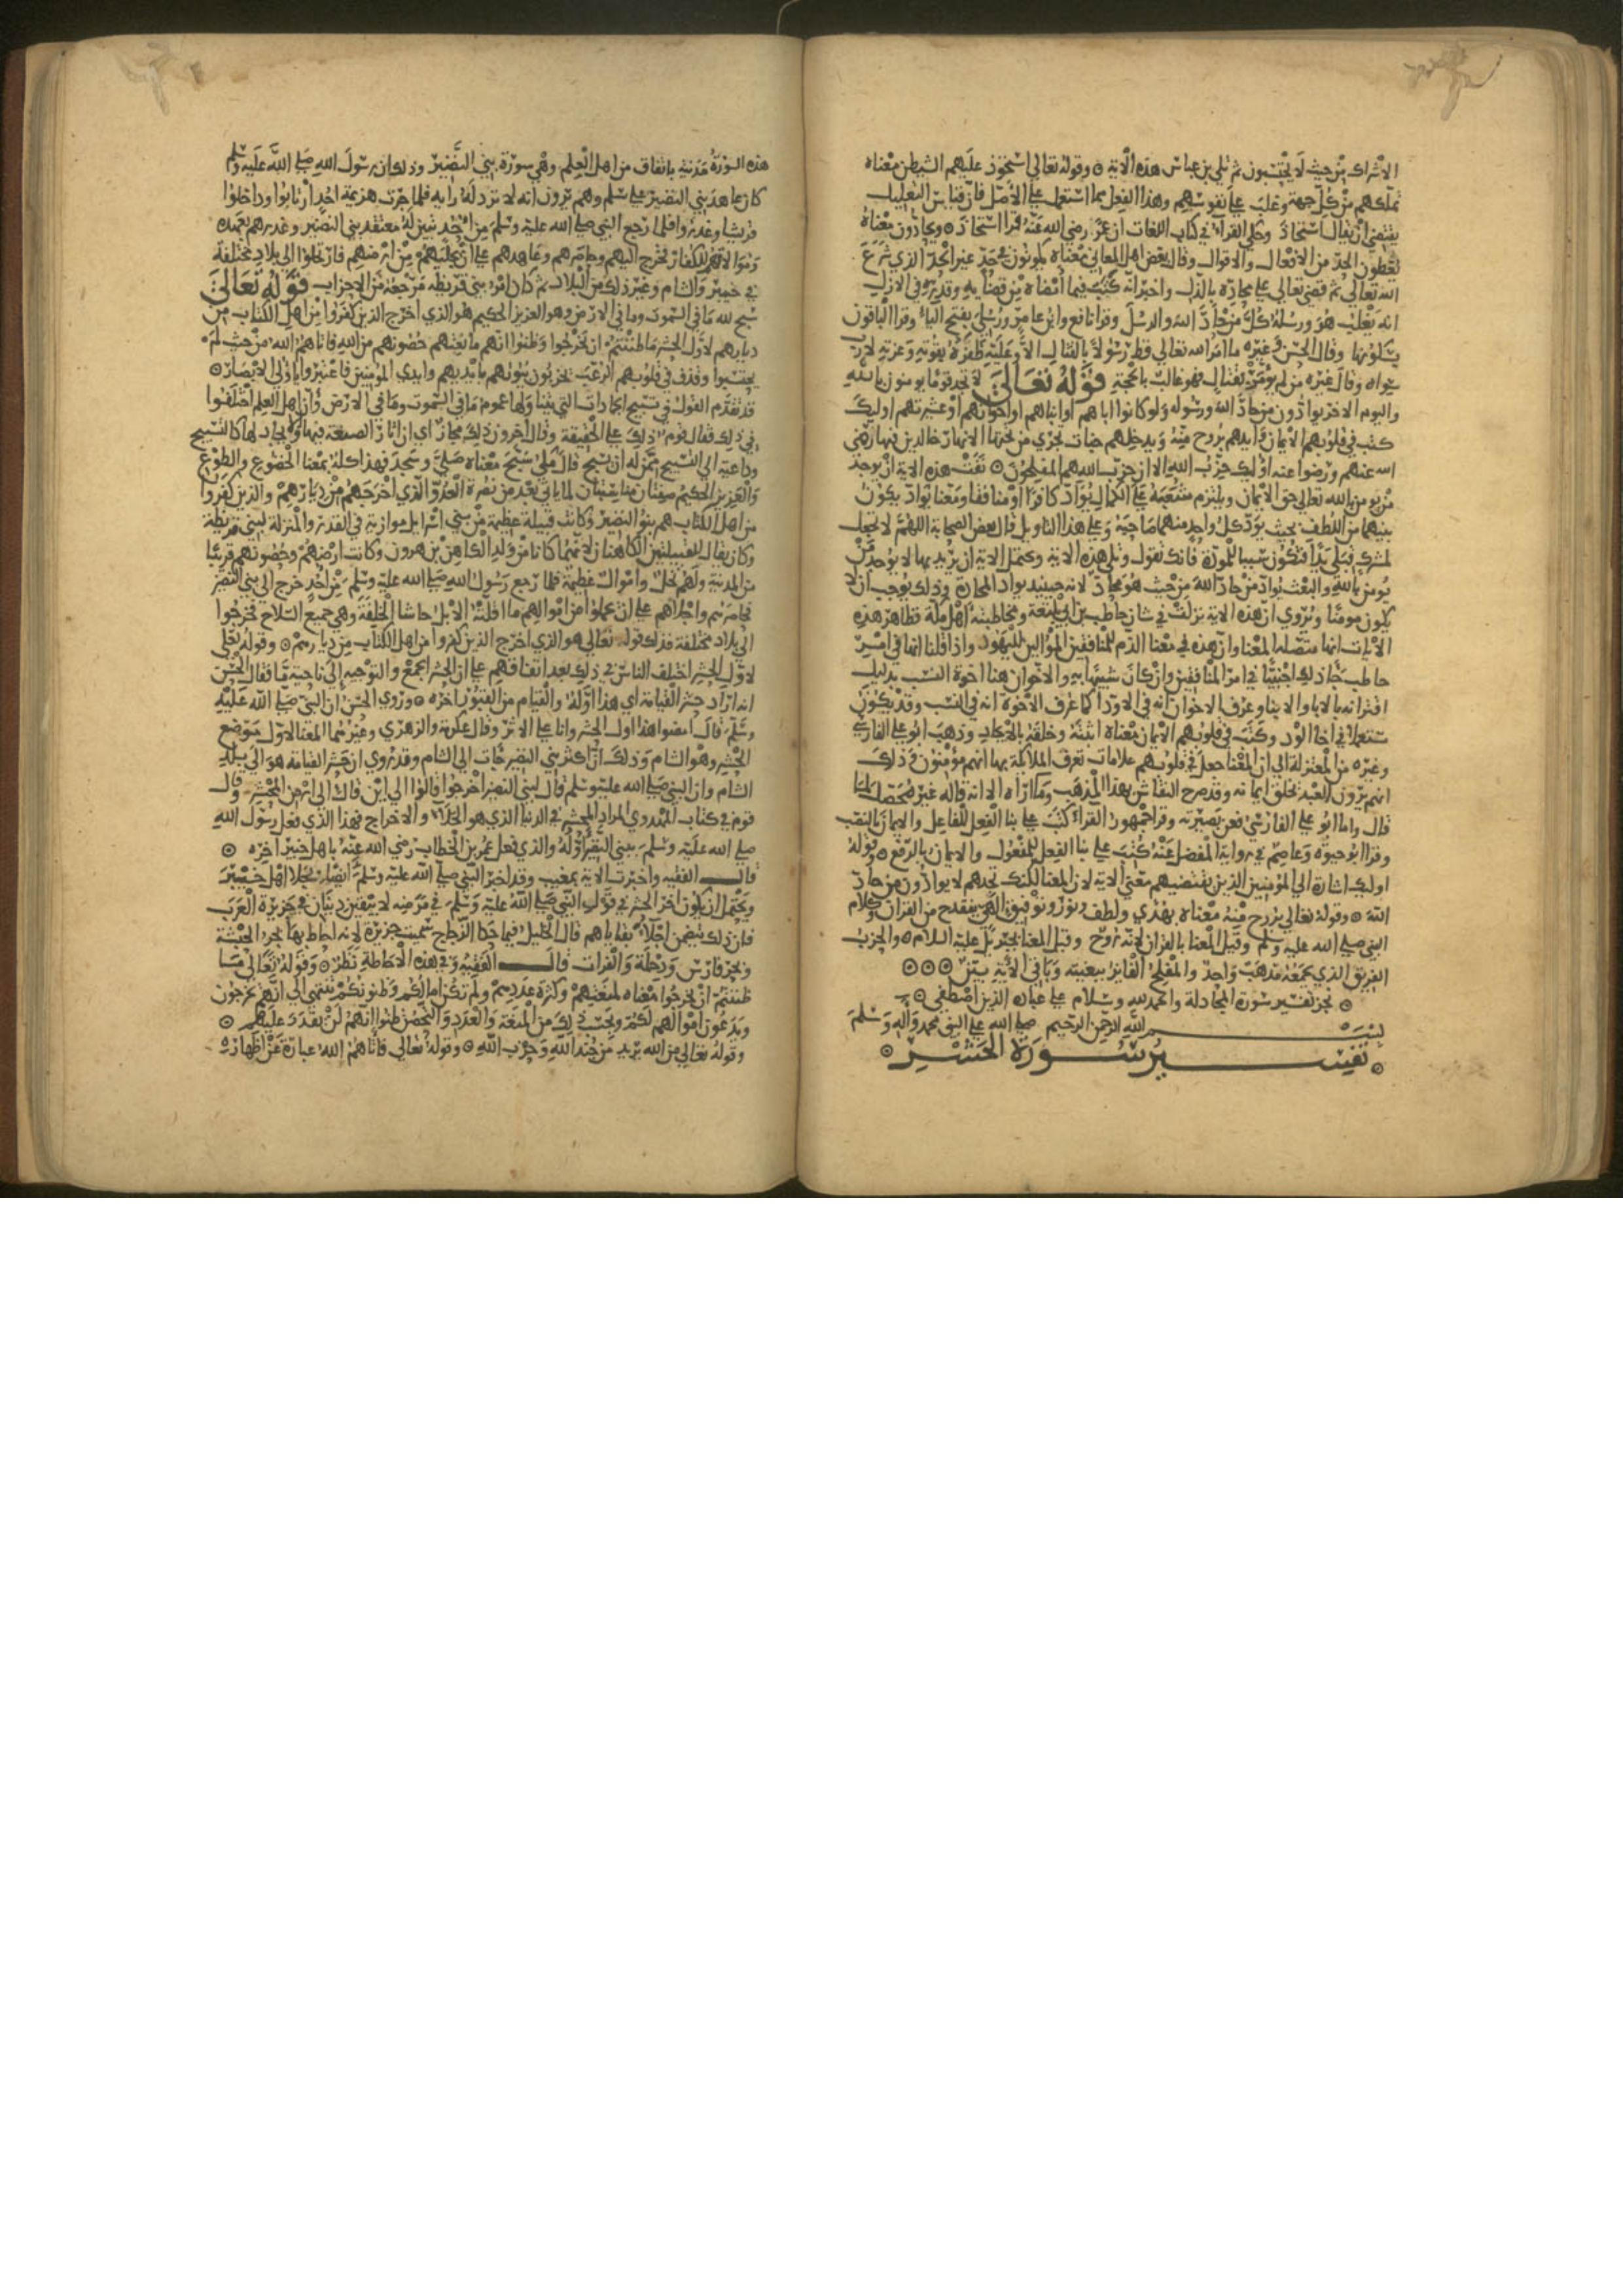 الاشراك من حيث لا يحتسبون ثم تلي بن عباس هذه الاية ۞ وقوله تعالي استحوذ عليهم الشيطن معناه
تملكهم من كل جهة وغلب علي نفوسهم وهذا الفعل مما استعمل علي الاصل فان قياس التعليل
يقتضي ان يقال استحاذ وحكي الفراء في كتاب اللغات ان عمر رضي الله عنه قرا استحاذ ۞ ويحادون معناه
يعطون الحد من الافعال والاقوال وقال بعض اهل المعاني معناه يكونون في حد غير الحد الذي شرع
الله تعالي ثم قضي تعالي علي محاده بالذل واخبر انه كتب فيما امضاه من قضايه وقدره في الازل
انه يغلب هو ورسله كل من حاد الله والرسل وقرا نافع وابن عامر ورسلي بفتح الياء وقرا الباقون
بسكونها وقال الحسن وغيره ما امر الله تعالي قط رسولا بالقتال الا وغلبه ظفره بقوته وعزته لا رب
سواه وقال غيره من لم يؤمر بقتال فهو غالب بالحجة قوله تعالي لا تجد قوما يومنون بالله
واليوم الاخر يوادون من حاد الله ورسوله ولو كانوا اباهم او ابناهم او اخوانهم او عشيرتهم اوليك
كتب في قلوبهم الايمان وايدهم بروح منه ويدخلهم جنات تجري من تحتها الانهار خالدين فيها رضي
الله عنهم ورضوا عنه اوليك حزب الله الا ان حزب الله هم المفلحون ۞ نفت هذه الاية ان يوجد
من يومن بالله تعالي حق الايمان ويلتزم شعبه علي الكمال يواد كافرا او منافقا ومعنا يواد يكون
بينهما من اللطف بحيث يود كل واحد منهما صاحبه وعلي هذا التاويل قال بعض الصحابة اللهم لا تجعل
لمشرك قبلي يدا فتكون سببا للمودة فانك تقول وتلي هذه الاية وتحتمل الاية ان يريد بها لا يوجد من
يومن بالله والبعث يواد من حاد الله من حيث هو محاد لانه حينيذ يواد المحادة وذلك يوجب ان لا
يكون مومنا ويروي ان هذه الاية نزلت في شان حاطب بن ابي بلتعة ومخاطبته اهل مكة فظاهر هذه
الايات انها متصلة المعنا وان هذه في معنا الذم للمنافقين الموالين لليهود واذا قلنا انها في امر
حاطب جا ذلك اجنبيا في امر المنافقين وان كان شبيها به والاخوان هنا اخوة النسب بدليل
اقترانه بالابا والابنا وعرف الاخوان انه في الاودا كما عرف الاخوة انه في النسب وقد يكون
مستعملا في اخا الود وكتب في قلوبهم الايمان معناه اثبته وخلقه بالايجاد وذهب ابو علي الفارسي
وغيره من المعتزلة الي ان المعنا جعل في قلوبهم علامات تعرف الملائكة بها انهم مؤمنون وذلك
انهم يرون العبد يخلق ايمانه وقد صرح النقاش بهذا المذهب وما اراه الا انه قاله غير محصل لما
قال واما ابو علي الفارسي فعن بصيرته وقرا جمهور القراء كتب علي بنا الفعل للفاعل والايمان بالنصب
وقرا ابو حيوة وعاصم في رواية المفضل عنه كتب علي بنا الفعل للمفعول والايمان بالرفع ۞ وقوله
اوليك اشارة الي المؤمنين الذين يقتضيهم معني الاية لان المعنا لكنك تجدهم لا يوادون من حاد
الله ۞ وقوله تعالي بروح منه معناه بهدي ولطف ونور وتوفيق الهي ينقدح من القران وكلام
النبي صلي الله عليه وسلم وقيل المعنا بالقران لانه روح وقيل المعنا بجبريل عليه السلام ۞ والحزب
الفريق الذي يجمعه مذهب واحد والمفلح الفايز ببغيته وباقي الاية بين ۞۞۞
۞ نجز تفسير سورة المجادلة والحمد لله وسلام علي عباده الذين اصطفي ۞
بسم الله الرحمن الرحيم صلي الله علي النبي محمد واله وسلم
۞ تفسير سورة الحشر ۞
هذه السورة مدنية باتفاق من اهل العلم وهي سورة بني النضير وذلك ان رسول الله صلي الله عليه وسلم
كان عاهد بني النضير علي سلم وهم يرون انه لا ترد له راية فلما جرت هزيمة احد ارتابوا وداخلوا
قريشا وغدروا فلما رجع النبي صلي الله عليه وسلم من احد تبين له معتقد بني النضير وغدرهم بعهده
وموالاتهم للكفار فخرج اليهم وحاصرهم وعاهدهم علي ان يجليهم من ارضهم فارتحلوا الي بلاد مختلفة
في خيبر والشام وغير ذلك من البلاد ثم كان امر بني قريظة مرجعه من الاحزاب قوله تعالي
سبح لله ما في السموت وما في الارض وهو العزيز الحكيم هو الذي اخرج الذين كفروا من اهل الكتاب من
ديارهم لاول الحشر ما ظننتم ان يخرجوا وظنوا انهم مانعتهم حصونهم من الله فاتاهم الله من حيث لم
يحتسبوا وقذف في قلوبهم الرعب يخربون بيوتهم بايديهم وايدي المؤمنين فاعتبروا يا اولي الابصار ۞
قد تقدم القول في تسبيح الجمادات التي يتناولها عموم ما في السموت وما في الارض وان اهل العلم اختلفوا
في ذلك فقال قوم ذلك علي الحقيقة وقال اخرون ذلك مجاز اي ان اثار الصنعة فيها والايجاد لها كالتسبيح
وداعية الي التسبيح ممن له ان يسبح قال مكي سبح معناه صلي وسجد فهذا كله بمعنا الخضوع والطوع
والعزيز الحكيم صفتان مناسبتان لما ياتي بعد من نصرة العدو الذي اخرجهم من ديارهم والذين كفروا
من اهل الكتاب هم بنو النضير وكانت قبيلة عظيمة من بني اسرايل موازية في القدر والمنزلة لبني قريظة
وكان يقال للقبيلتين الكاهنان لانهما كانا من ولد الكاهن بن هرون وكانت ارضهم وحصونهم قريبا
من المدينة ولهم نخل واموال عظيمة فلما رجع رسول الله صلي الله عليه وسلم من احد خرج الي بني النضير
فحاصرهم واجلاهم علي ان يحملوا من اموالهم ما اقلته الابل حاشا الحلقة وهي جميع السلاح فخرجوا
الي بلاد مختلفة فذلك قوله تعالي هو الذي اخرج الذين كفروا من اهل الكتاب من ديارهم ۞ وقوله تعلي
لاول الحشر اختلف الناس في ذلك بعد اتفاقهم علي ان الحشر الجمع والتوجيه الي ناحية ما فقال الحسن
انه اراد حشر القيامة اي هذا اوله والقيام من القبور اخره ۞ وروي الحسن ان النبي صلي الله عليه
وسلم قال امضوا هذا اول الحشر وانا علي الاثر وقال عكرمة والزهري وغيرهما المعنا الاول موضع
الحشر وهو الشام وذلك ان اكثر بني النضير جات الي الشام وقد روي ان حشر القيامة هو الي بلد
الشام وان النبي صلي الله عليه وسلم قال لبني النضير اخرجوا قالوا الي اين قال الي ارض المحشر وقال
قوم في كتاب المهدوي المراد الحشر في الدنيا الذي هو الجلاء والاخراج فهذا الذي فعل رسول الله
صلي الله عليه وسلم ببني النضير اوله والذي فعل عمر بن الخطاب رضي الله عنه باهل خيبر اخره ۞
قال الفقيه واخبرت الاية بمغيب وقد اخبر النبي صلي الله عليه وسلم ايضا بجلا اهل خيبر
ويحتمل ان يكون اخر الحشر في قول النبي صلي الله عليه وسلم في مرضه لا يبقين دينان في جزيرة العرب
فان ذلك يتضمن اجلاء بقاياهم قال الخليل فيما حكا الزجاج سميت جزيرة لانه احاط بها بحر الحبشة
وبحر فارس ودجلة والفرات قال الفقيه وفي هذه الاحاطة نظر ۞ وقوله تعالي ما
ظننتم ان يخرجوا معناه لمنعتهم وكثرة عددهم ولم تكن امالكم وظنونكم تنتهي الي انهم يخرجون
ويدعون اموالهم لكم وبحسب ذلك من المنعة والعدد والتحصن ظنوا انهم لن يقدر عليهم ۞
وقوله تعالي من الله يريد من جند الله وحزب الله ۞ وقوله تعالي فاتاهم الله عبارة عن اظهاره